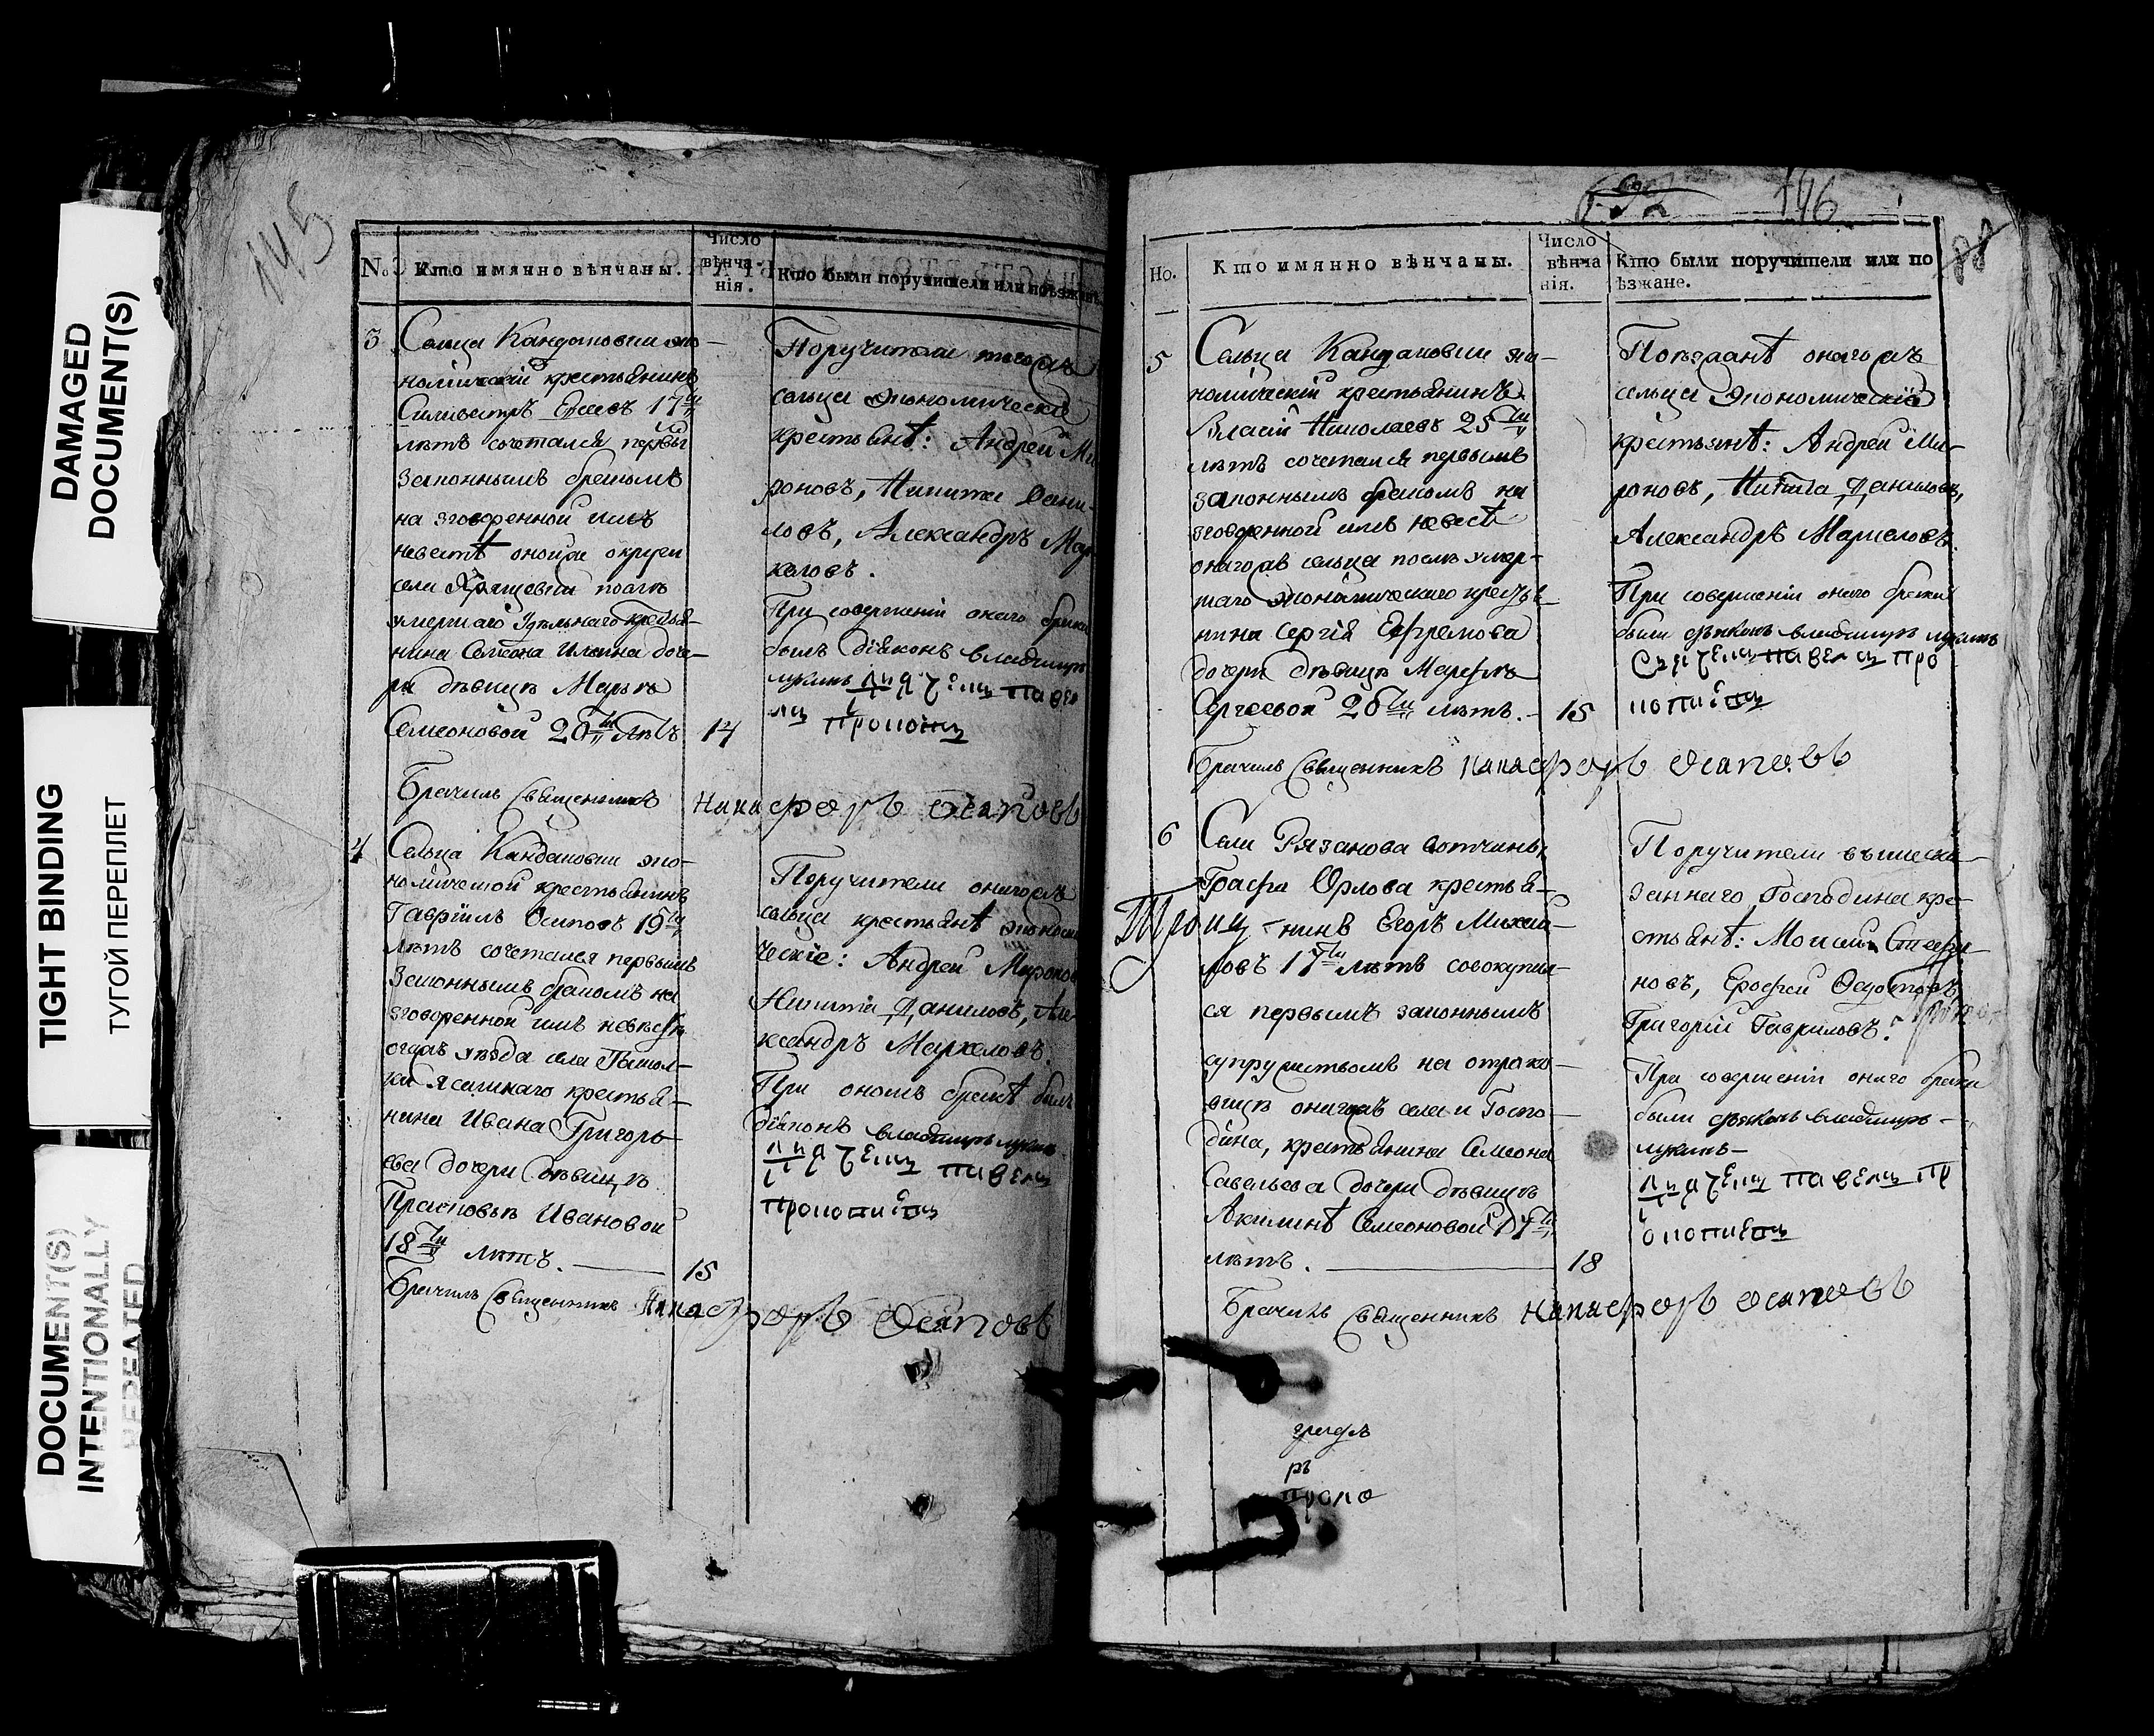 DAMAGED
DOCUMENT(S)
TIGHT BINDING
ТУГОЙ ПЕРЕПЛЕТ
DOCUMENT(S)
INTENTIONALLY
REPEATED
145
№
Кто имянно вѣнчаны.
Число
вѣнча-
нія.
Кто были поручители или поѣзжане.
3
Сельца Кандаковки эко-
номической крестьянинъ
Силивестръ 17ти
лѣтъ сочетался первы
законнымъ бракомъ
на зговоренной имъ
невестѣ онойже округи
села Хрящевки послѣ
умершаго Удѣльнаго крестья-
нина Семіона Ильина доче-
ри дѣвицѣ Марьѣ
Семеоновой 20ти лѣтъ
14
Поручители тогожъ
сельца экономическія
крестьянѣ: Андрей Ми
роновъ, Никита Дани-
ловъ, Александръ Мар
келовъ.
При совершеніи онаго брака
былъ діяконъ владимиръ
лукинъ павел
Брачилъ священникъ Никифоръ Осиповъ
4
Сельца Кандаковки эко-
номической крестьянинъ
Гавріилъ Осиповъ 19ти
лѣтъ сочетался первымъ
законнымъ бракомъ на
зговоренной имъ невестѣ
уѣзда села
ки ясашнаго крестья-
нина Ивана Григорь-
ева дочери дѣвицѣ
Прасковьѣ Ивановой
18ти лѣтъ.
15
Поручители оногожъ
сельца крестьянѣ экономи
ческіе: Андрей Миронов
Никита Даниловъ, Але
ксандръ Маркеловъ.
При ономъ бракѣ былъ
діяконъ владимиръ лукинъ
Брачилъ священникъ Никифоръ Осиповъ
146
88
Но.
Кто имянно вѣнчаны.
Число
вѣнча
нія.
Кто были поручители или по
ѣзжане.
5
Сельца Кандаковки эко-
номическій крестьянинъ
Власій Николаевъ 25ти
лѣтъ сочетался первымъ
законнымъ бракомъ на
зговоренной имъ невестѣ
оногожъ сельца послѣ умер-
шаго экономическаго крестья-
нина Сергія Ефремова
дочери дѣвицѣ Марфѣ
Сергеевой 20ти лѣтъ.
15
Поезжанѣ оногожъ
сельца экономическія
крестьянѣ: Андрей Ми-
роновъ, Никита Даниловъ,
Александръ Маркеловъ.
При совершеніи онаго брака
были дьяконъ владимиръ лукинъ
Брачилъ священникъ Никифоръ Осиповъ
6
Села Рязанова вотчины
Графа Орлова крестья-
нинъ Егоръ Михаи-
ловъ 17ти лѣтъ совокупил-
ся первымъ законнымъ
супружествомъ на отроко-
вицѣ оногожъ села и Госпо-
дина, крестьянина Семеона
Савельева дочери дѣвицѣ
Акилинѣ Семеоновой 17ти
лѣтъ.
18
Поручители вышеска-
заннаго Господина кре-
стьянѣ: Моисей Стефа-
новъ, Ерофей Федотовъ,
Григорій Гавриловъ.
При совершеніи онаго брака
были дьяконъ владимиръ
лукинъ
Брачилъ священникъ Никифоръ Осиповъ